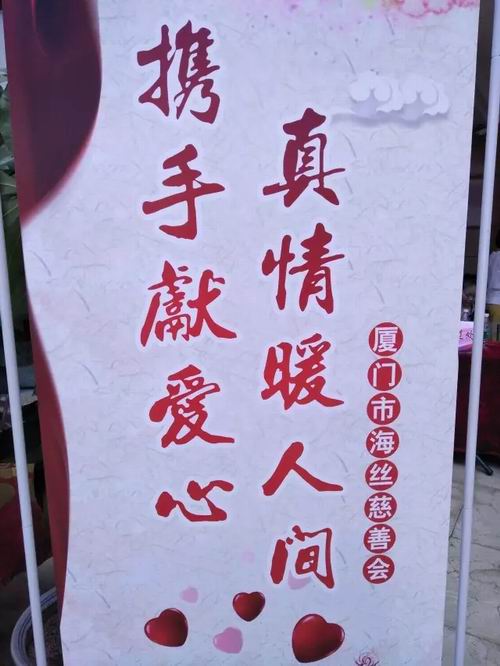 携手獻愛心
真情暖人间
厦门市海丝慈善会